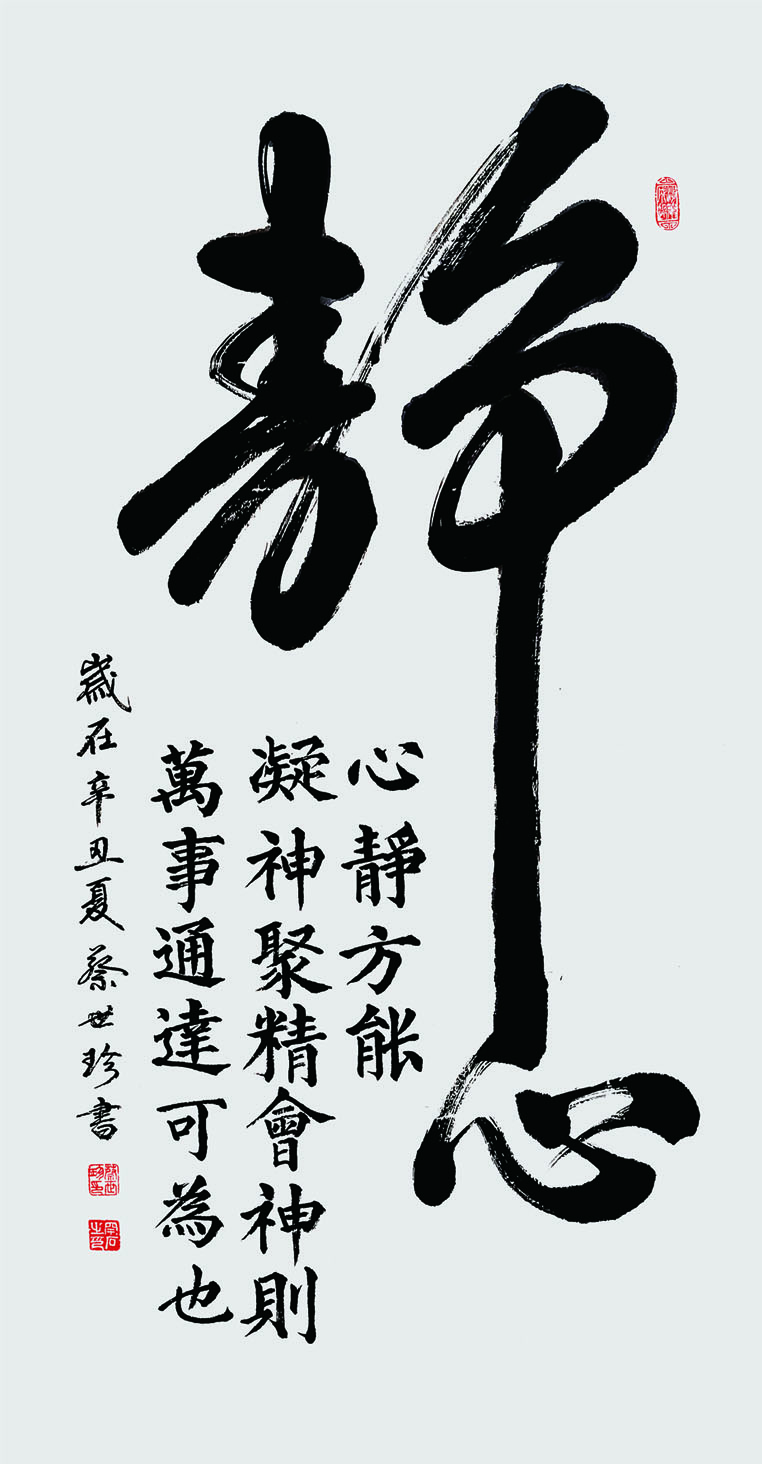 靜心
心靜方能
凝神聚精會神則
萬事通達可為也
歲在辛丑夏蔡世珍書